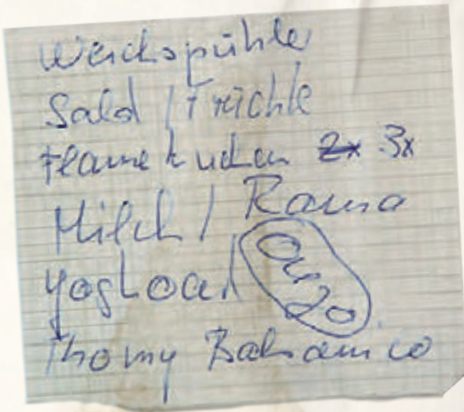 Weichspühler
Salad / Früchte
Flamekuchen 2x 3x
Milch / Rama
Yoghoad
Thomy Balsamico